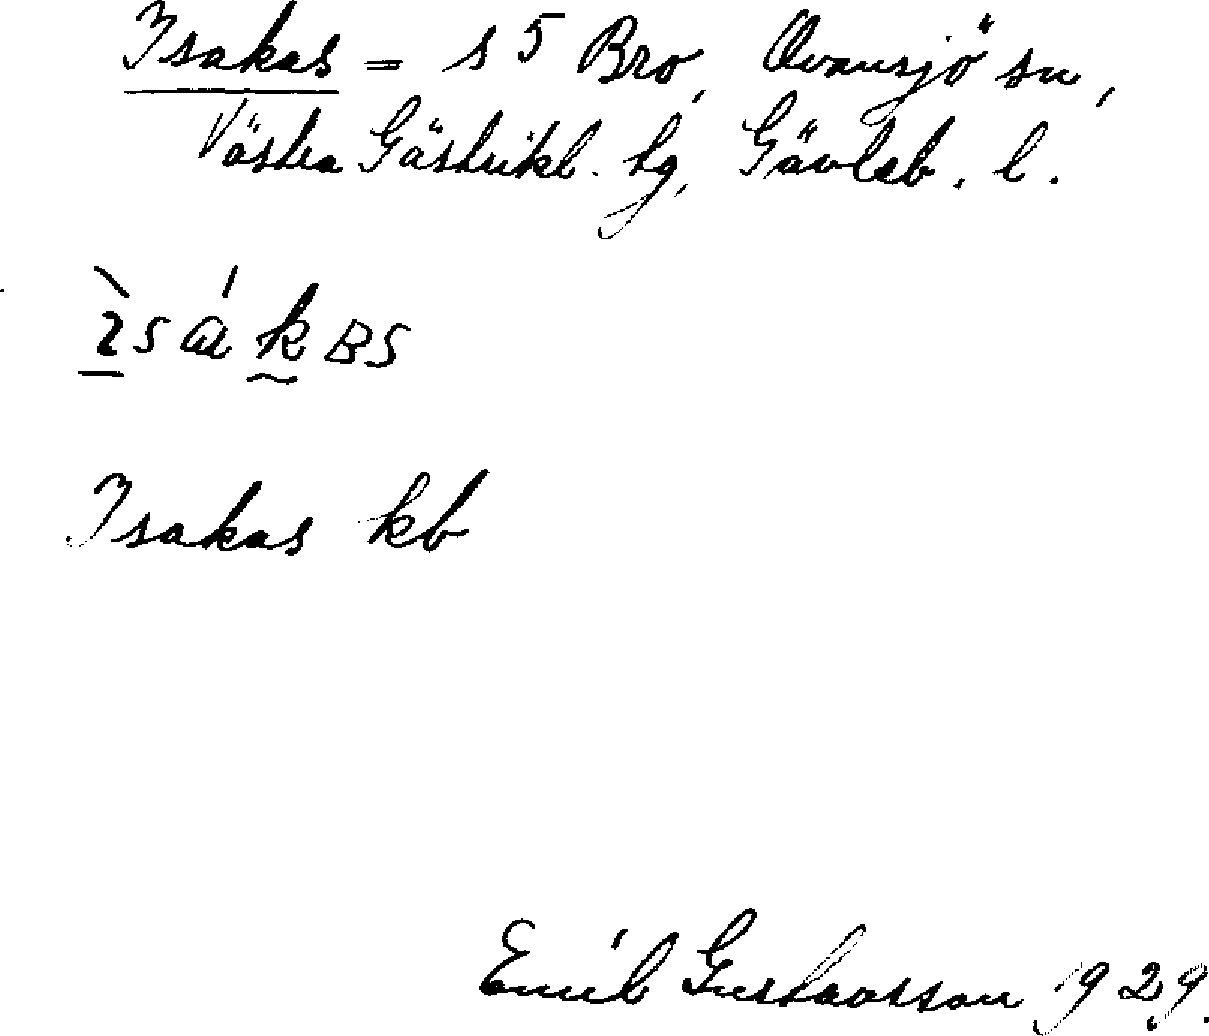 Isakas = s 5 Bro, Ovansjö sn,
Västra Gästrikl. hg, Gävleb. l.
Isakas kb
Emil Gustavsson 1929.